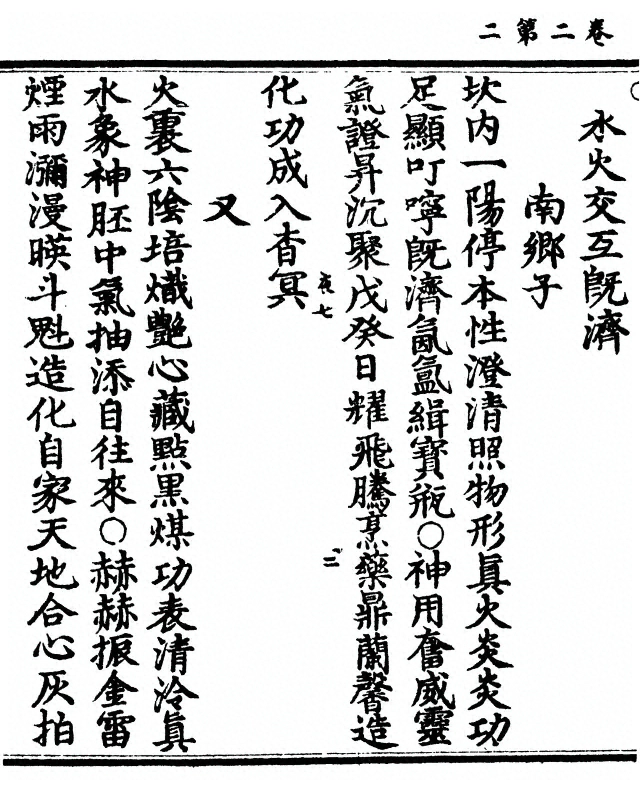 卷二第二
水火交互旣濟
南鄉子
坎内一陽停本性澄清照物形眞火炎炎功
足顯叮嚀旣濟氤氳緝寶瓶〇神用奮威靈
氣證昇沉聚戊癸日耀飛騰烹藥鼎蘭馨造
化功成入杳冥
夜七
二
又
火裏六陰培熾艷心藏點黑煤功表清泠眞
水象神胚中氣抽添自往來〇赫赫振金雷
煙雨瀰漫暎斗魁造化自家天地合心灰拍